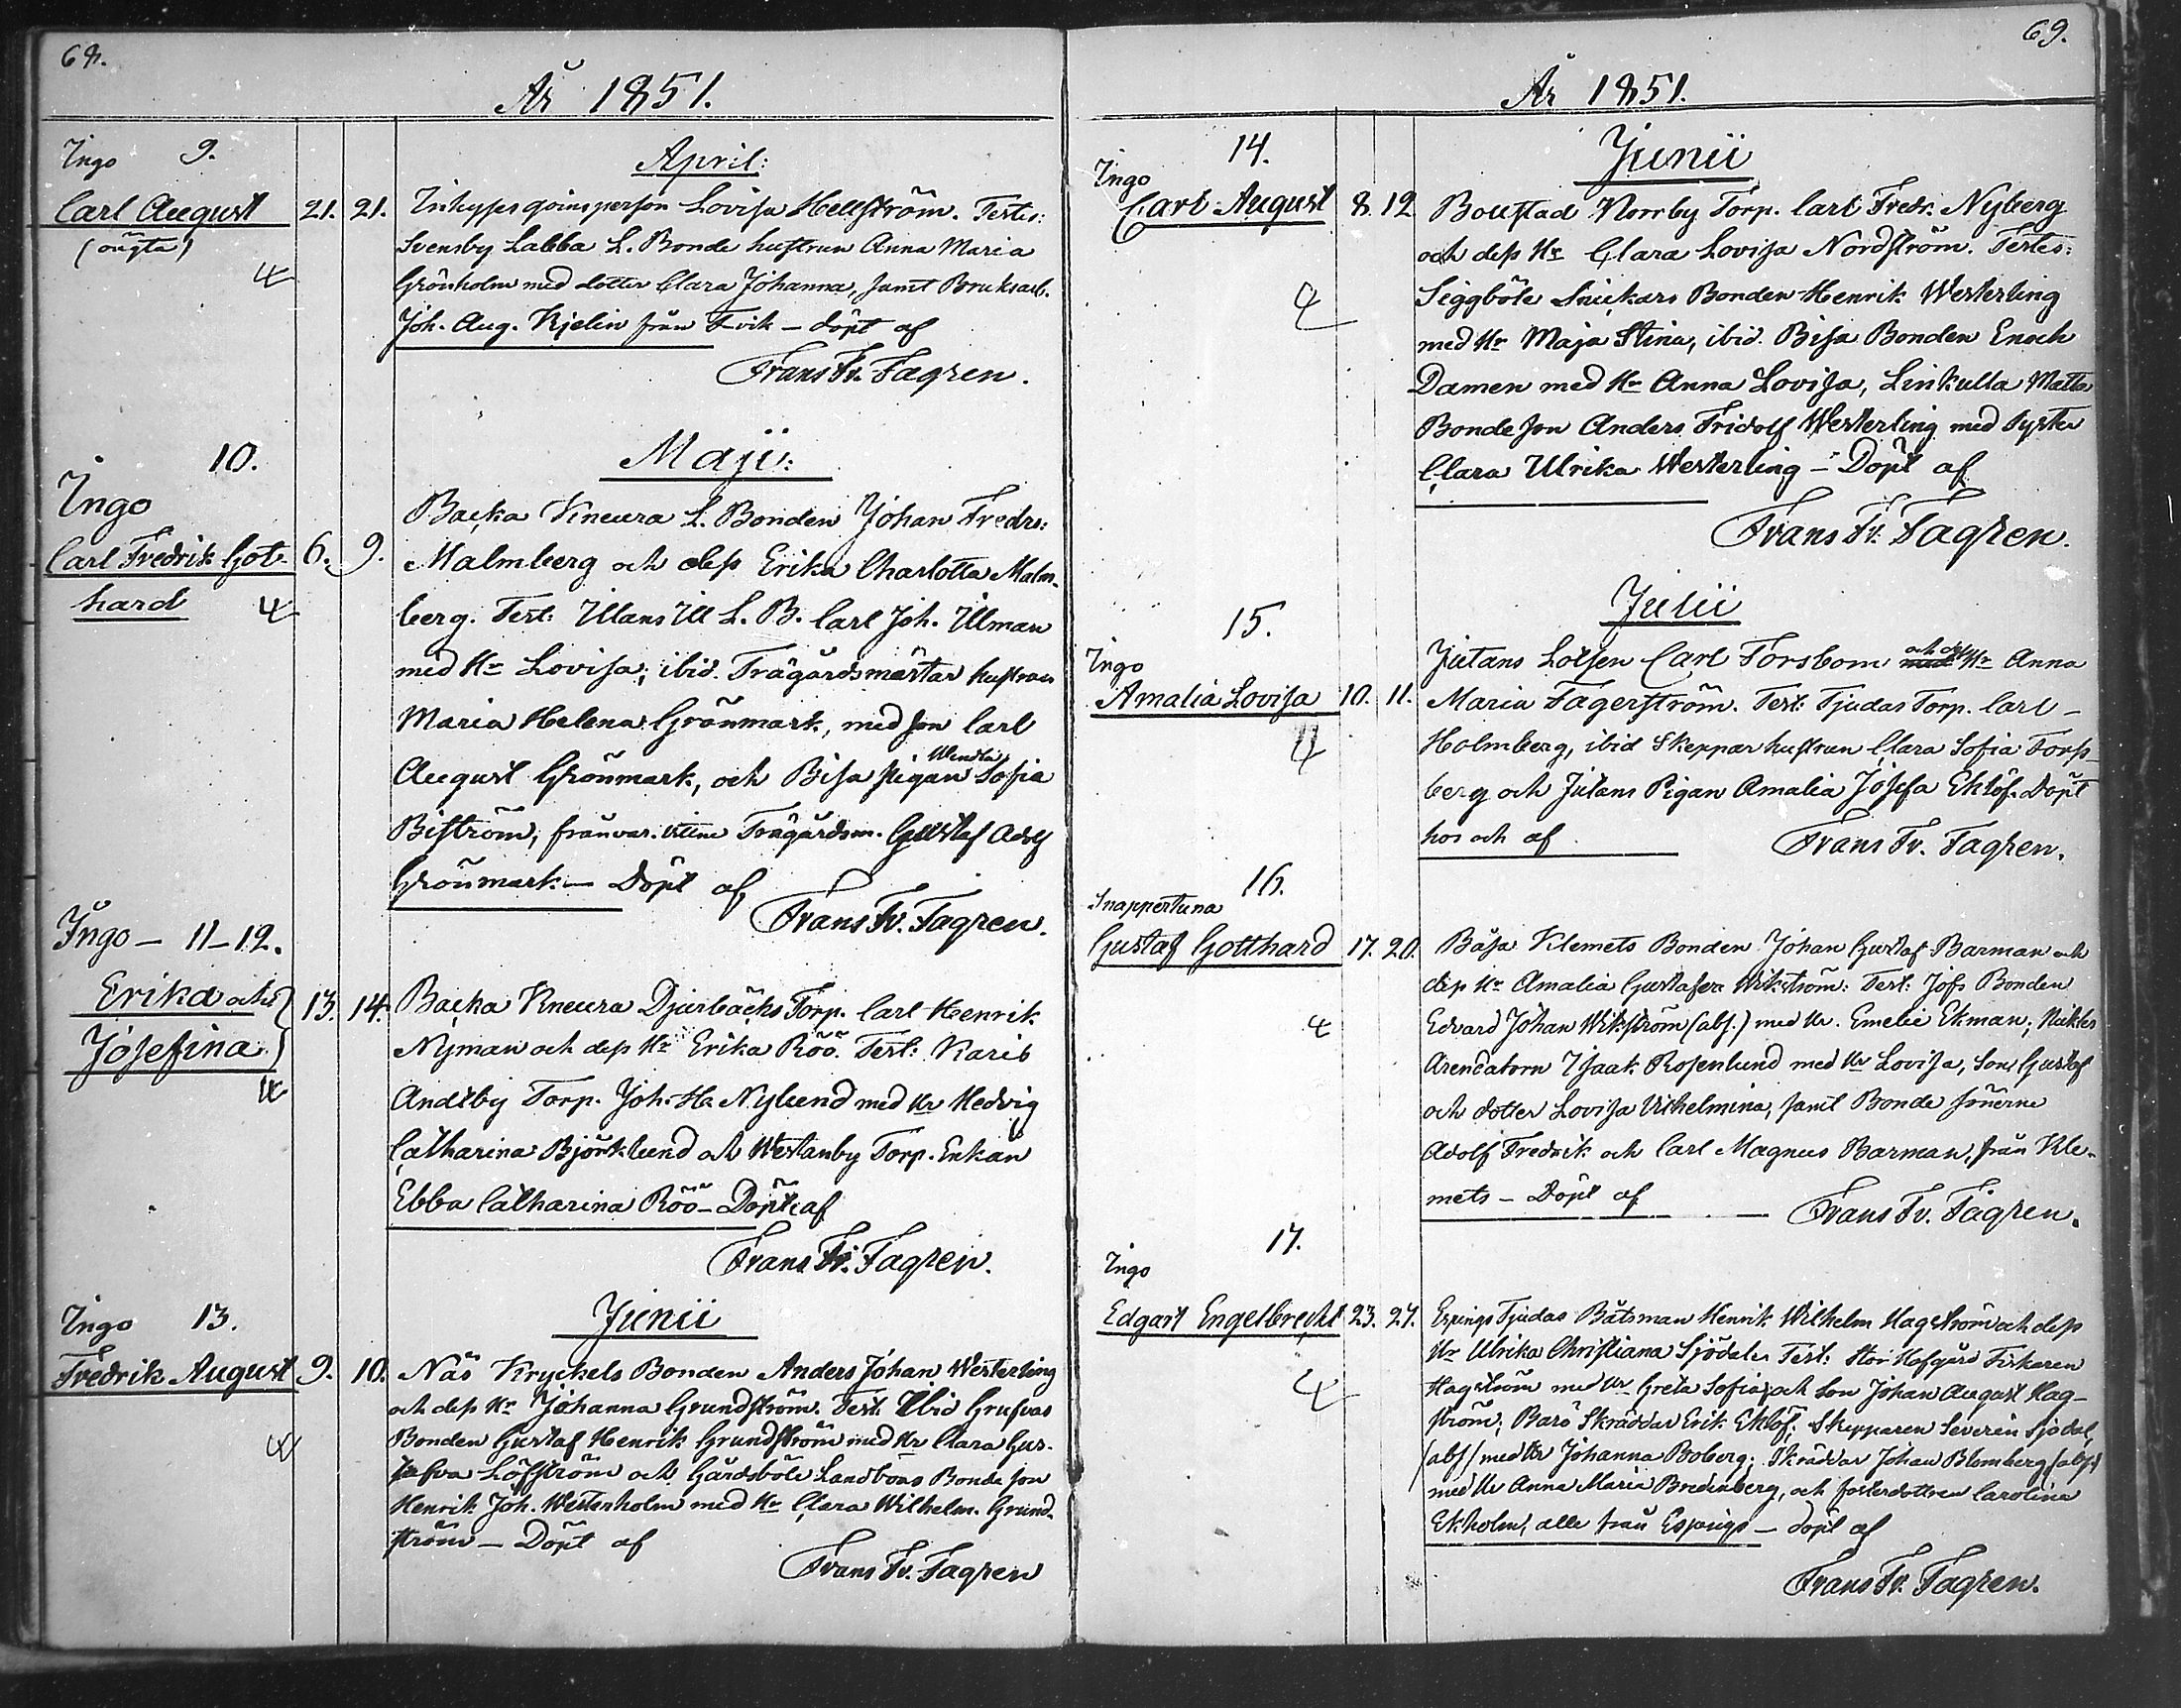 68.
År 1851.
Ingo 9.
April:
Carl August 21. 21. Inhyses qvinsperson Lovisa Hellström. Testes:
(oägta) Svensby Labba L. Bonde hustrun Anna Maria
4 Grönholm med dotter Clara Johanna, samt Bruksarb.
Joh. Aug. Kjelin från Fvik – döpt af
Frans Fr. Fagren.
10.
Maji:
Ingo
Backa Kneura L. Bonden Johan Fredr:
Carl Fredrik Got- 6. 9. Malmberg och dess Erika Charlotta Malm-
hard 4 berg. Test: Illans Ill L. B. Carl Joh. Illman
med Hr Lovisa; ibid. Trägårdsmästar hustrun
Maria Helena Grönmark, med son Carl
August Grönmark, och Bisa pigan Wendla Sofia
Biström, frånvar. vittne Trägårdsm. Gustaf Adolf
Grönmark – Döpt af
Frans Fr. Fagren.
Ingo – 11–12.
Erika och 13. 14. Backa Kneura Djurbäcks Torp. Carl Henrik
Josefina Nyman och dess Hr Erika Röö. Test: Karis
4 Andsby Torp. Joh. H. Nylund med Hr Hedvig
Catharina Björklund och Westanby Torp. Enkan
Ebba Catharina Röö – Döpt af
Frans Fr. Fagren.
Junii
Ingo 13.
Fredrik August 9. 10. Näs Kryckels Bonden Anders Johan Westerling
och dess Hr Johanna Grundström. Test. Ibid Grufvas
4 Bonden Gustaf Henrik Grundström med Hr Clara Gus-
tafva Löfström och Gårdsböle Landbons Bonde son
Henrik Joh. Westerholm med Hr Clara Wilhelm. Grund-
ström – Döpt af
Frans Fr. Fagren
69.
År 1851.
14.
Junii
Ingo
Carl August 8. 12. Boustad Norrby Torp. Carl Fredr. Nyberg
och dess Hr Clara Lovisa Nordström. Testes:
4 Seggböle Snickars Bonden Henrik Westerling
med Hr Maja Stina, ibid. Bisa Bonden Enoch
Damen med Hr Anna Lovisa, Linkulla Matts
Bonde son Anders Fridolf Westerling med syster
Clara Ulrika Westerling – Döpt af
Frans Fr. Fagren.
Julii
15.
Ingo
Jutans Lotsen Carl Forsbom och dess Hr Anna
Amalia Lovisa 10. 11. Maria Fagerström. Test: Tjudas Torp. Carl
4 Holmberg, ibid Skeppar hustrun Clara Sofia Forss-
berg och Jutans Pigan Amalia Josefa Eklöf. Döpt
hos och af
Frans Fr. Fagren.
16.
Snappertuna
Gustaf Gotthard 17. 20. Båsa Klemets Bonden Johan Gustaf Barman och
dess Hr Amalia Gustafva Wikström: Test: Jofs Bonden
4 Edvard Johan Wikström (abs.) med Hr. Emelie Ekman;
Arendatorn Isaak Rosenlund med Hr Lovisa, Son Gustaf
och dotter Lovisa Vilhelmina, samt Bonde sönerne
Adolf Fredrik och Carl Magnus Barman, från Kle-
mets – Döpt af
Frans Fr. Fagren.
17.
Ingo
Edgart Engelbrecht 23. 27. Espings Tjudas Båtsman Henrik Wilhelm Hagström och dess
Hr Ulrika Christiana Sjödal. Test: Stor Hofgård Fiskaren
4 Hagström med Hr Greta Sofia och son Johan August Hag-
ström; Barö Skräddar Erik Eklöf: Skepparen Severin Sjödal
(abs) med Hr Johanna Boberg; Skräddar Johan Blomberg (abs.)
med Hr Anna Maria Bredenberg, och fosterdottren Carolina
Ekholm, alle från Espings – döpt af
Frans Fr. Fagren.